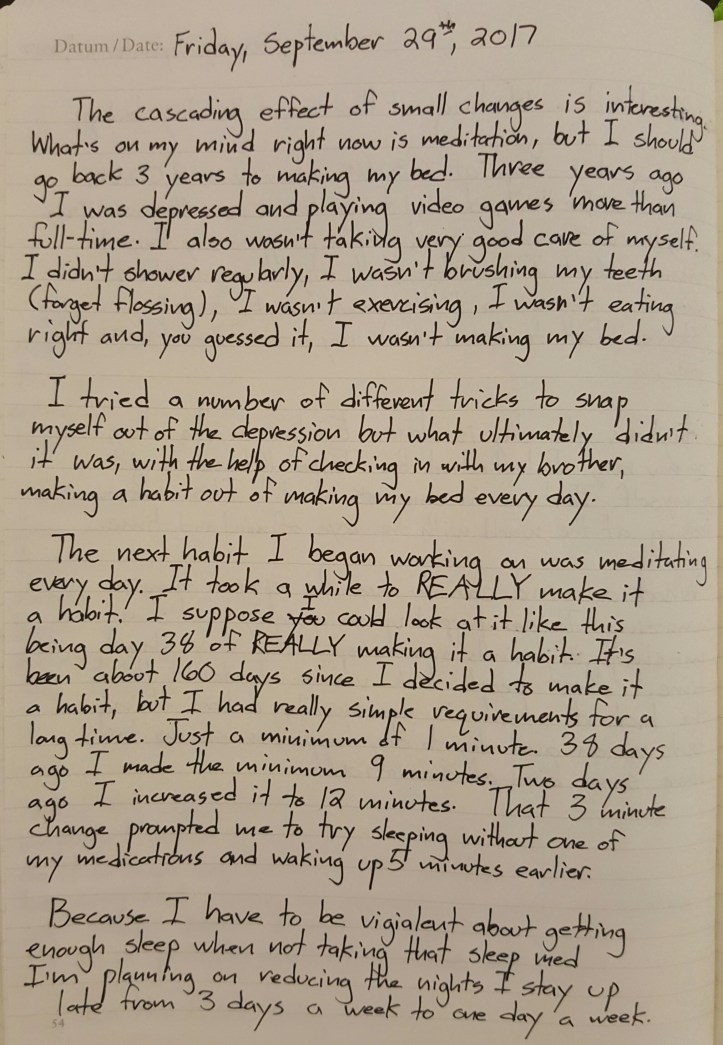 Datum / Date: Friday, September 29th, 2017
The cascading effect of small changes is interesting.
What's on my mind right now is meditation, but I should
go back 3 years to making my bed. Three years ago
I was depressed and playing video games more than
full-time. I also wasn't taking very good care of myself.
I didn't shower regularly, I wasn't brushing my teeth
(forget flossing), I wasn't exercising, I wasn't eating
right and, you guessed it, I wasn't making my bed.
I tried a number of different tricks to snap
myself out of the depression but what ultimately didn't
it was, with the help of checking in with my brother,
making a habit out of making my bed every day.
The next habit I began working on was meditating
every day. It took a while to REALLY make it
a habit. I suppose I could look at it like this
being day 38 of REALLY making it a habit. It's
been about 160 days since I decided to make it
a habit, but I had really simple requirements for a
long time. Just a minimum of 1 minute. 38 days
ago I made the minimum 9 minutes. Two days
ago I increased it to 12 minutes. That 3 minute
change prompted me to try sleeping without one of
my medications and waking up 5 minutes earlier.
Because I have to be vigialent about getting
enough sleep when not taking that sleep med
I'm planning on reducing the nights I stay up
late from 3 days a week to one day a week.
54